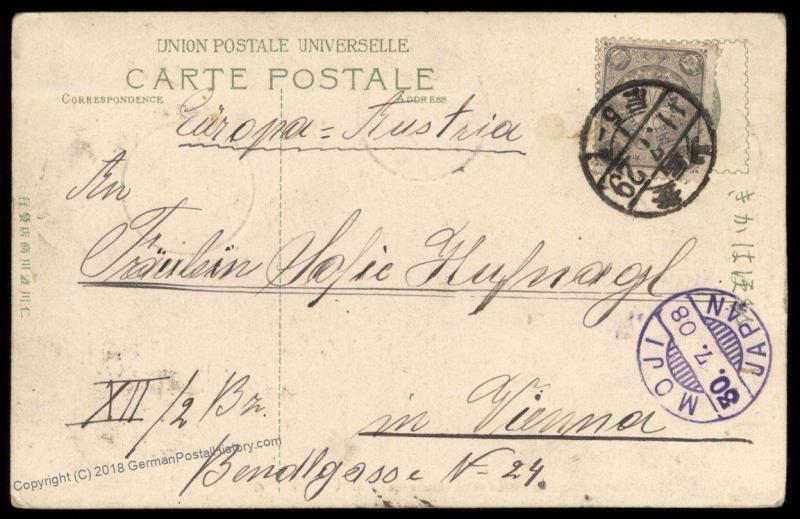 UNION POSTALE UNIVERSELLE
CARTE POSTALE
CORRESPONDENCE
ADDRESS
Európa = Austria
An
Fräulein Sofie Hufnagl
XII/2 Bz.
in Vienna
Bendlgasse N= 24.
MOJI
30.7.08
JAPAN
きかはほ
仁川港川商店發行
Copyright (C) 2018 GermanPostalHistory.com